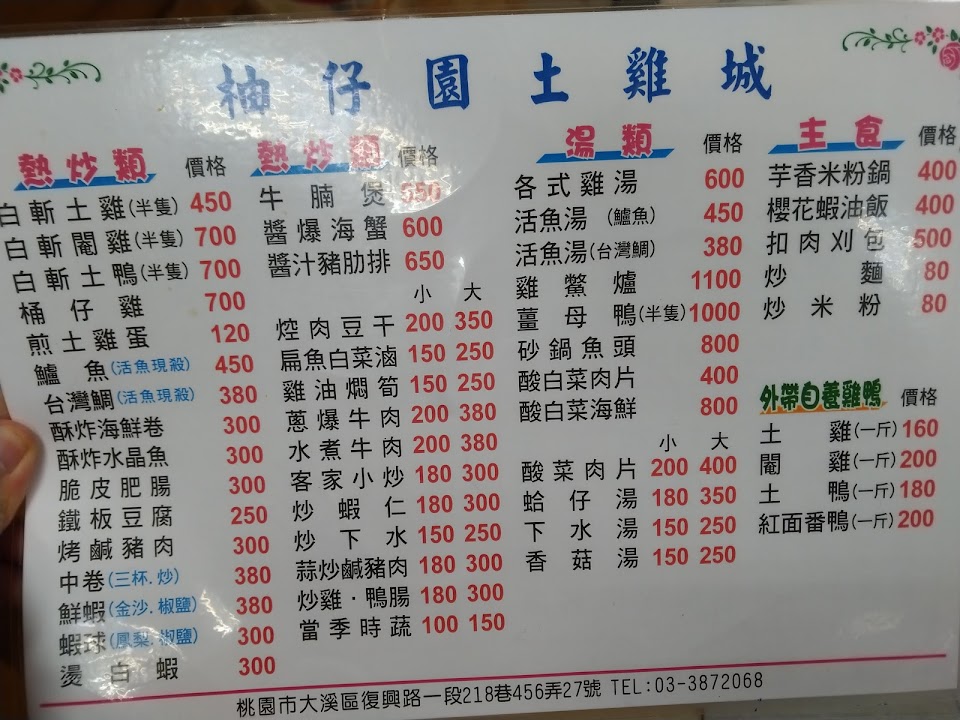 柚仔園土雞城
熱炒類 價格
白斬土雞(半隻) 450
白斬閹雞(半隻) 700
白斬土鴨(半隻) 700
桶仔雞 700
煎土雞蛋 120
鱸魚(活魚現殺) 450
台灣鯛(活魚現殺) 380
酥炸海鮮卷 300
酥炸水晶魚 300
脆皮肥腸 300
鐵板豆腐 250
烤鹹豬肉 300
中卷(三杯.炒) 380
鮮蝦(金沙.椒鹽) 380
蝦球(鳳梨.椒鹽) 300
燙白蝦 300
熱炒類 價格
牛腩煲 550
醬爆海蟹 600
醬汁豬肋排 650
小 大
焢肉豆干 200 350
扁魚白菜滷 150 250
雞油燜筍 150 250
蔥爆牛肉 200 380
水煮牛肉 200 380
客家小炒 180 300
炒蝦仁 180 300
炒下水 150 250
蒜炒鹹豬肉 180 300
炒雞.鴨腸 180 300
當季時蔬 100 150
湯類 價格
各式雞湯 600
活魚湯(鱸魚) 450
活魚湯(台灣鯛) 380
雞鱉爐 1100
薑母鴨(半隻) 1000
砂鍋魚頭 800
酸白菜肉片 400
酸白菜海鮮 800
小 大
酸菜肉片 200 400
蛤仔湯 180 350
下水湯 150 250
香菇湯 150 250
主食 價格
芋香米粉鍋 400
櫻花蝦油飯 400
扣肉刈包 500
炒麵 80
炒米粉 80
外帶自養雞鴨 價格
土雞(一斤) 160
閹雞(一斤) 200
土鴨(一斤) 180
紅面番鴨(一斤) 200
桃園市大溪區復興路一段218巷456弄27號 TEL:03-3872068